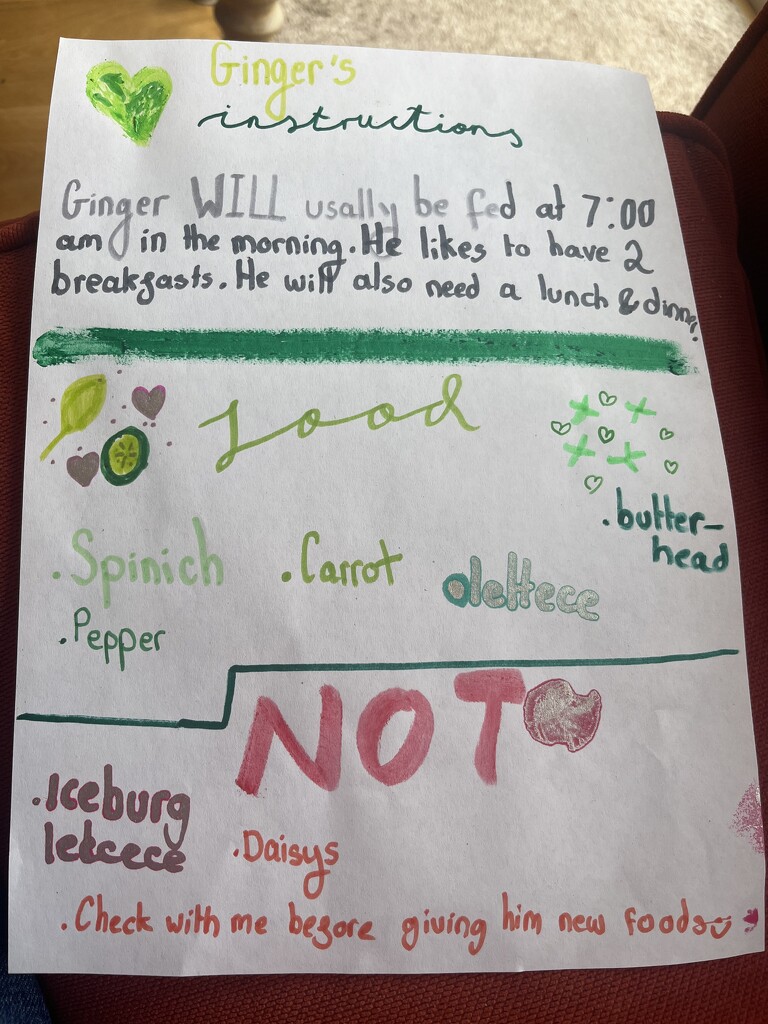 Ginger's
instructions
Ginger WILL usally be fed at 7:00
am in the morning. He likes to have 2
breakfasts. He will also need a lunch & dinner
food
.Spinich
.Carrot
.lettece
.butter-
head
.Pepper
NOT
.Iceburg
lettcece
.Daisys
.Check with me before giving him new foods